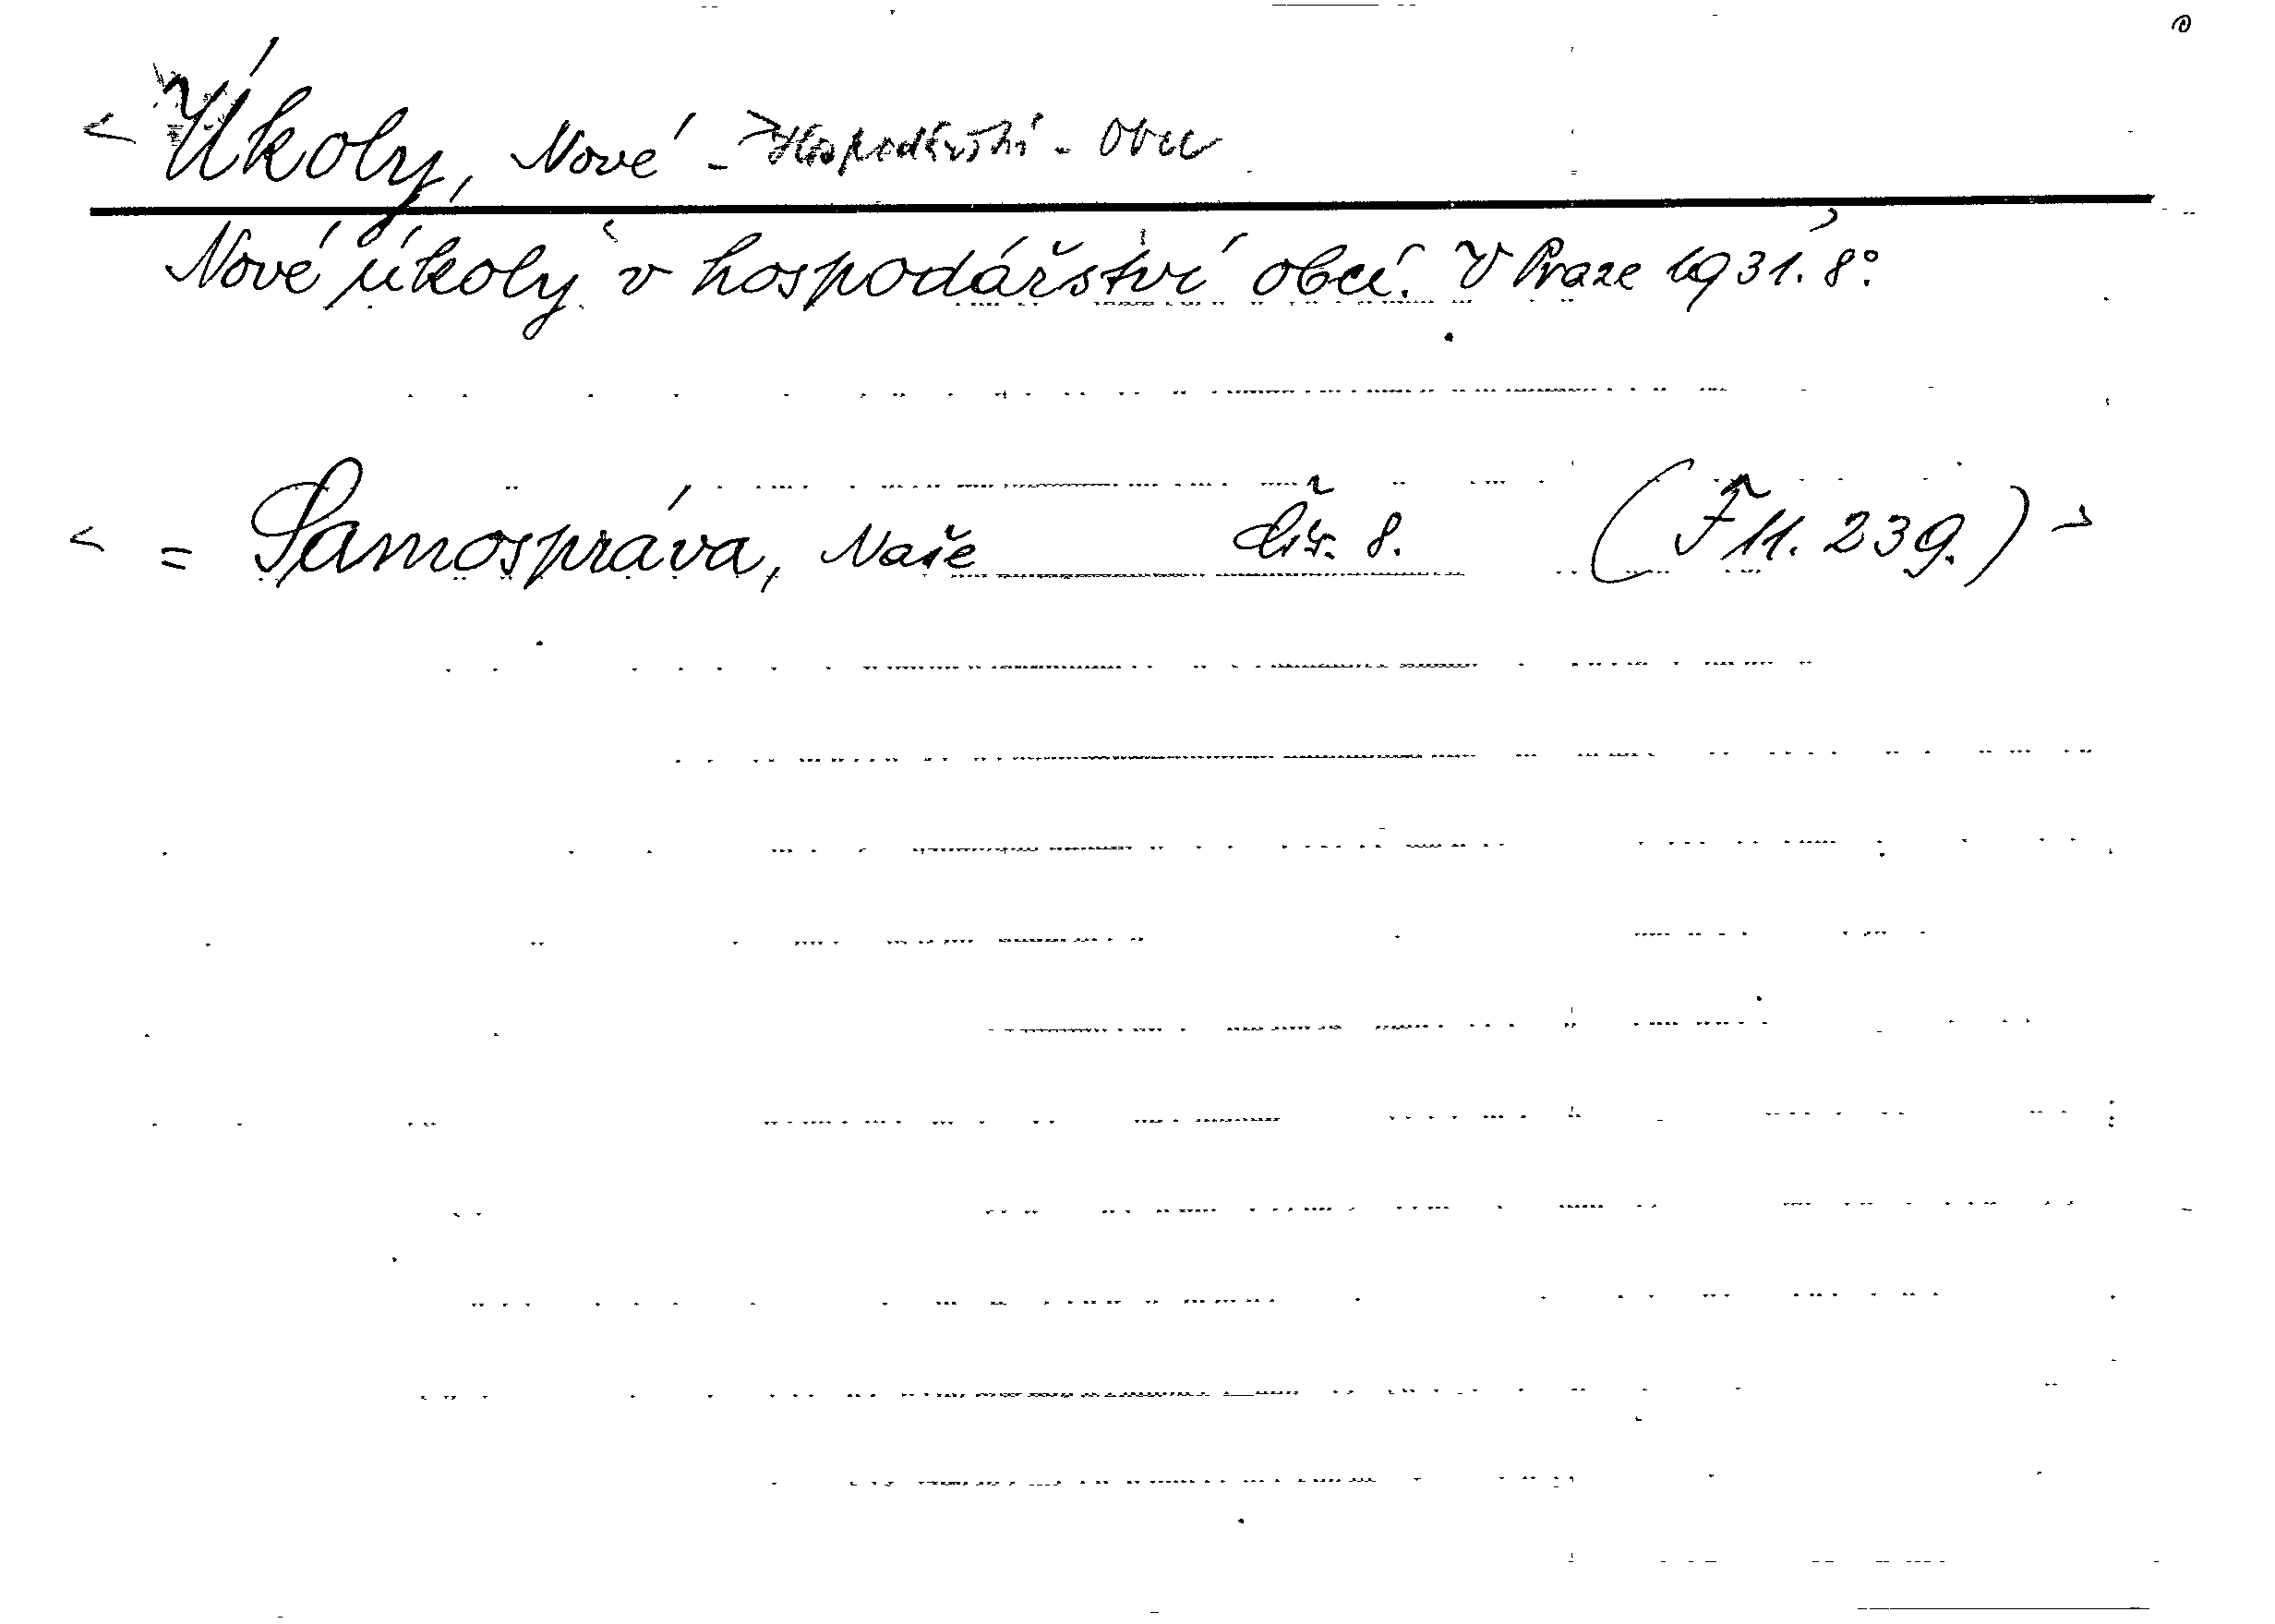 < Úkoly, Nové - > Hospodářství - Obec
Nové úkoly v hospodářství obcí. V Praze 1931. 8°.
< = Samospráva, Naše čís. 8. (F 11. 239.) >